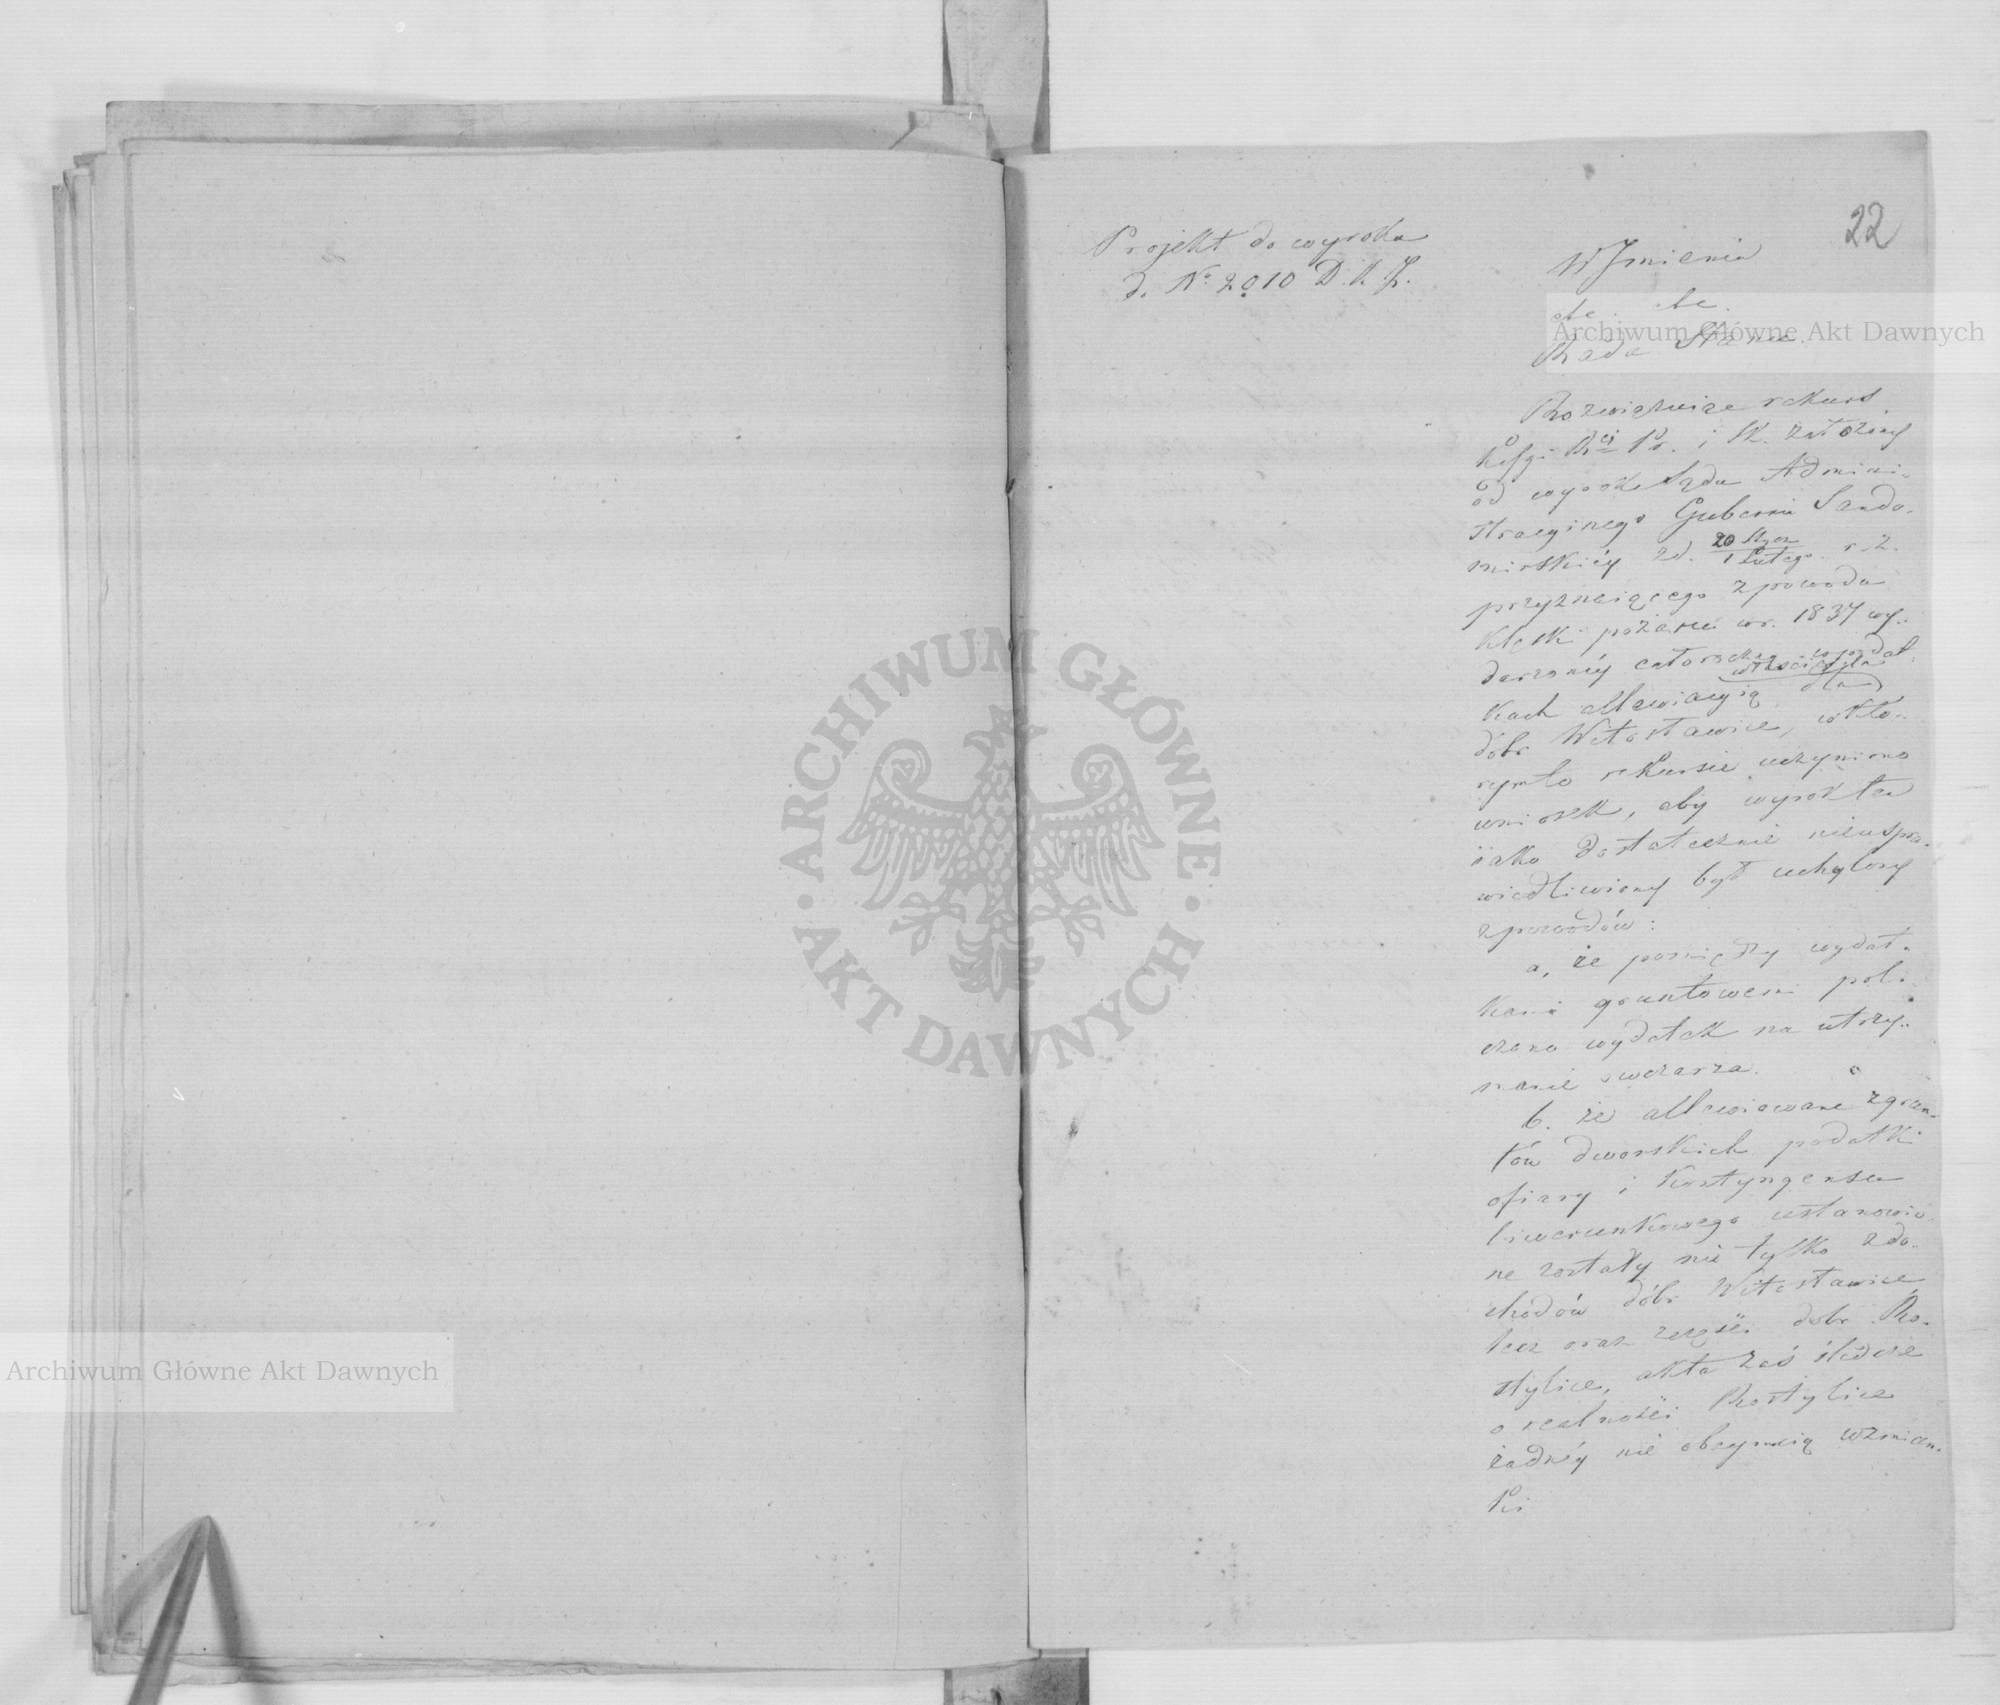 22
Projekt do wyroku
d. No 2010 D.K.Z.
W Imieniu
etc. etc.
Rada Stanu.
Rozwiązuiąc rekurs
Rci Pr. i Sk. założony
od wyroku Sądu Admini-
stracyinego Gubernii Sando-
mirskiéy z d. 20 Stycz / 1 Lutego r. z.
przyznaiącego z powodu
klęski pożaru w r. 1837 wy-
darzonéy całoroczną w podat-
kach allewiacyią dla właściciela
dóbr Witosławice, w któ-
rymto rekursie uczyniono
wniosek, aby wyrok ten
iako dostatecznie nieuspra-
wiedliwiony był uchylony
z powodów:
a, że pomiędzy wydat-
kami gruntowemi poli-
czono wydatek na utrzy-
manie owczarza.
b. że allewiowane z grun-
tów dworskich podatki
ofiary i kontyngensu
liwerunkowego ustanowio-
ne zostały nie tylko z do-
chodów dóbr Witosławice,
lecz oraz z części dóbr Ro-
stylice, akta zaś śledcze
o realności Rostylice
żadnéy nie obeymuią wzmian-
ki
ARCHIWUM GŁÓWNE · AKT DAWNYCH ·
Archiwum Główne Akt Dawnych
Archiwum Główne Akt Dawnych